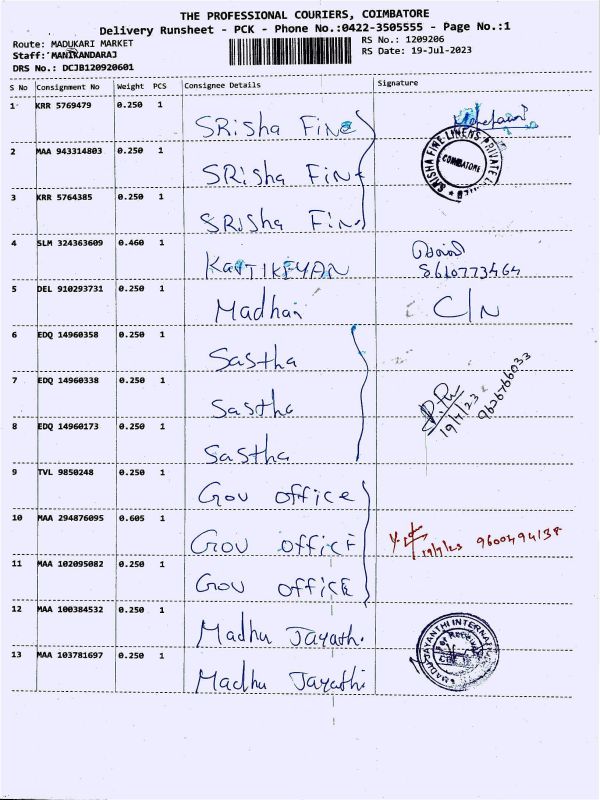 THE PROFESSIONAL COURIERS, COIMBATORE
Delivery Runsheet - PCK - Phone No.:0422-3505555 - Page No.:1
Route: MADUKARI MARKET RS No.: 1209206
Staff: MANIKANDARAJ RS Date: 19-Jul-2023
DRS No.: DCJB120920601
S No Consignment No Weight PCS Consignee Details Signature
1 KRR 5769479 0.250 1
SRisha Fine
2 MAA 943314803 0.250 1
SRisha Fine
SRISHA FINE LINENS PRIVATE
COIMBATORE
3 KRR 5764385 0.250 1
SRisha Fine
4 SLM 324363609 0.460 1
KartiKEYAN 8610773464
5 DEL 910293731 0.250 1
Madhan C/N
6 EDQ 14960358 0.250 1
Sastha
7 EDQ 14960338 0.250 1
Sastha 19/7/23 9626766033
8 EDQ 14960173 0.250 1
Sastha
9 TVL 9850248 0.250 1
Gov office
10 MAA 294876095 0.605 1
Gov officE 19/7/23
11 MAA 102095082 0.250 1
Gov officE
12 MAA 100384532 0.250 1
Madhu Jayath.
13 MAA 103781697 0.250 1
Madhu Jayathi